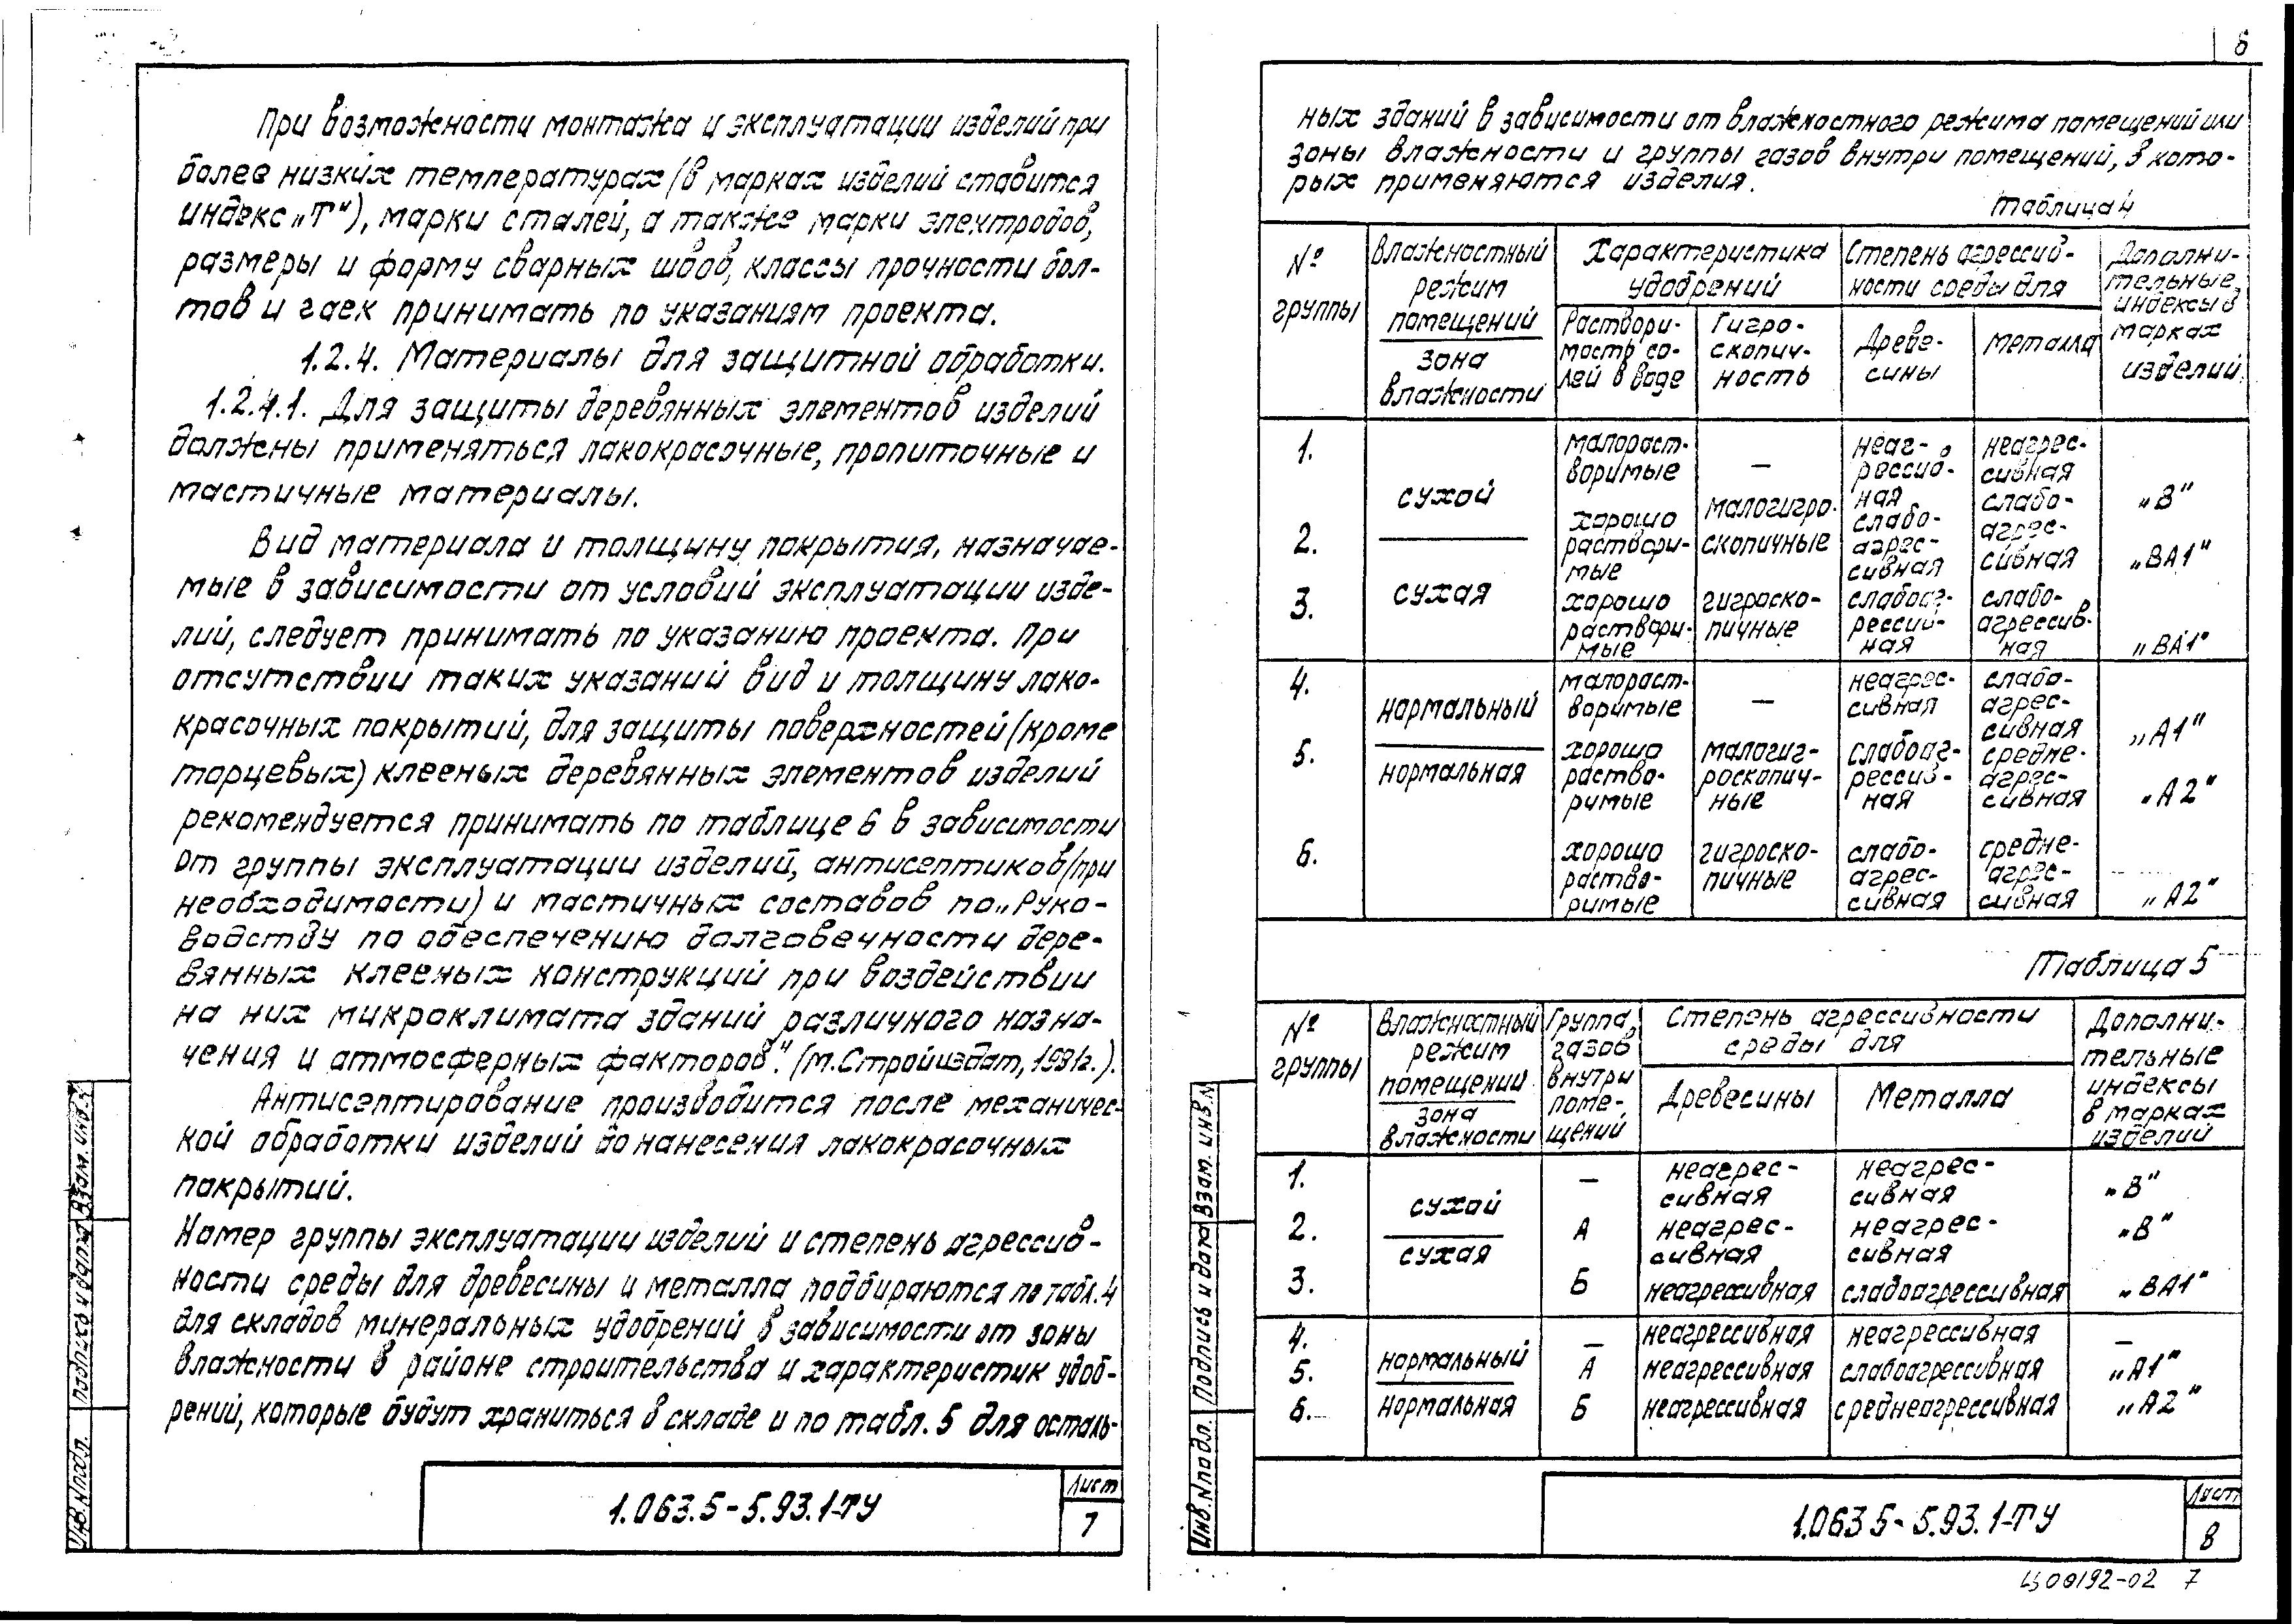 При возможности монтажа и эксплуатации изделий при
более низких температурах (в марках изделий ставится
индекс „Т"), марки сталей, а также марки электродов,
размеры и форму сварных швов, классы прочности бол-
тов и гаек принимать по указаниям проекта.
1.2.4. Материалы для защитной обработки.
1.2.4.1. Для защиты деревянных элементов изделий
должны применяться лакокрасочные, пропиточные и
мастичные материалы.
Вид материала и толщину покрытия, назначае-
мые в зависимости от условий эксплуатации изде-
лий, следует принимать по указанию проекта. При
отсутствии таких указаний вид и толщину лако-
красочных покрытий, для защиты поверхностей (кроме
торцевых) клееных деревянных элементов изделий
рекомендуется принимать по таблице 6 в зависимости
от группы эксплуатации изделий, антисептиков (при
необходимости) и мастичных составов по „Руко-
водству по обеспечению долговечности дере-
вянных клееных конструкций при воздействии
на них микроклимата зданий различного назна-
чения и атмосферных факторов". (М. Стройиздат, 1981г.).
Антисептирование производится после механичес-
кой обработки изделий до нанесения лакокрасочных
покрытий.
Номер группы эксплуатации изделий и степень агрессив-
ности среды для древесины и металла подбираются по табл. 4
для складов минеральных удобрений в зависимости от зоны
влажности в районе строительства и характеристик удоб-
рений, которые будут храниться в складе и по табл. 5 для осталь-
Инв.№подл. Подпись и дата Взам. инв.№
1.063.5-5.93.1-ТУ
Лист
7
6
ных зданий в зависимости от влажностного режима помещений или
зоны влажности и группы газов внутри помещений, в кото-
рых применяются изделия.
Таблица 4
№ группы
Влажностный режим помещений
зона влажности
Характеристика удобрений
Раствори-
мость со-
лей в воде
Гигро-
скопич-
ность
Степень агрессив-
ности среды для
Древе-
сины
Металла
Дополни-
тельные
индексы в
марках
изделий
1.
сухой
сухая
малораст-
воримые
—
неаг-
рессив-
ная
неагрес-
сивная
„В"
2.
хорошо
раствори-
мые
малогигро-
скопичные
слабо-
агрес-
сивная
слабо-
агрес-
сивная
„ВА1"
3.
хорошо
раствори-
мые
гигроско-
пичные
слабоаг-
рессив-
ная
слабо-
агрессив-
ная
„ВА1"
4.
нормальный
нормальная
малораст-
воримые
—
неагрес-
сивная
слабо-
агрес-
сивная
„А1"
5.
хорошо
раство-
римые
малогиг-
роскопич-
ные
слабоаг-
рессив-
ная
средне-
агрес-
сивная
„А2"
6.
хорошо
раство-
римые
гигроско-
пичные
слабо-
агрес-
сивная
средне-
агрес-
сивная
„А2"
Таблица 5
№
группы
Влажностный
режим
помещений
зона
влажности
Группа
газов
внутри
поме-
щений
Степень агрессивности
среды для
Древесины
Металла
Дополни-
тельные
индексы
в марках
изделий
1.
сухой
сухая
—
неагрес-
сивная
неагрес-
сивная
„В"
2.
А
неагрес-
сивная
неагрес-
сивная
„В"
3. Б неагрессивная слабоагрессивная „ВА1"
4. — неагрессивная неагрессивная —
нормальный
5. А неагрессивная слабоагрессивная „А1"
нормальная
6. Б неагрессивная среднеагрессивная „А2"
Инв.№подл. Подпись и дата Взам. инв.№
1.063.5-5.93.1-ТУ
Лист
8
Ц00192-02 7